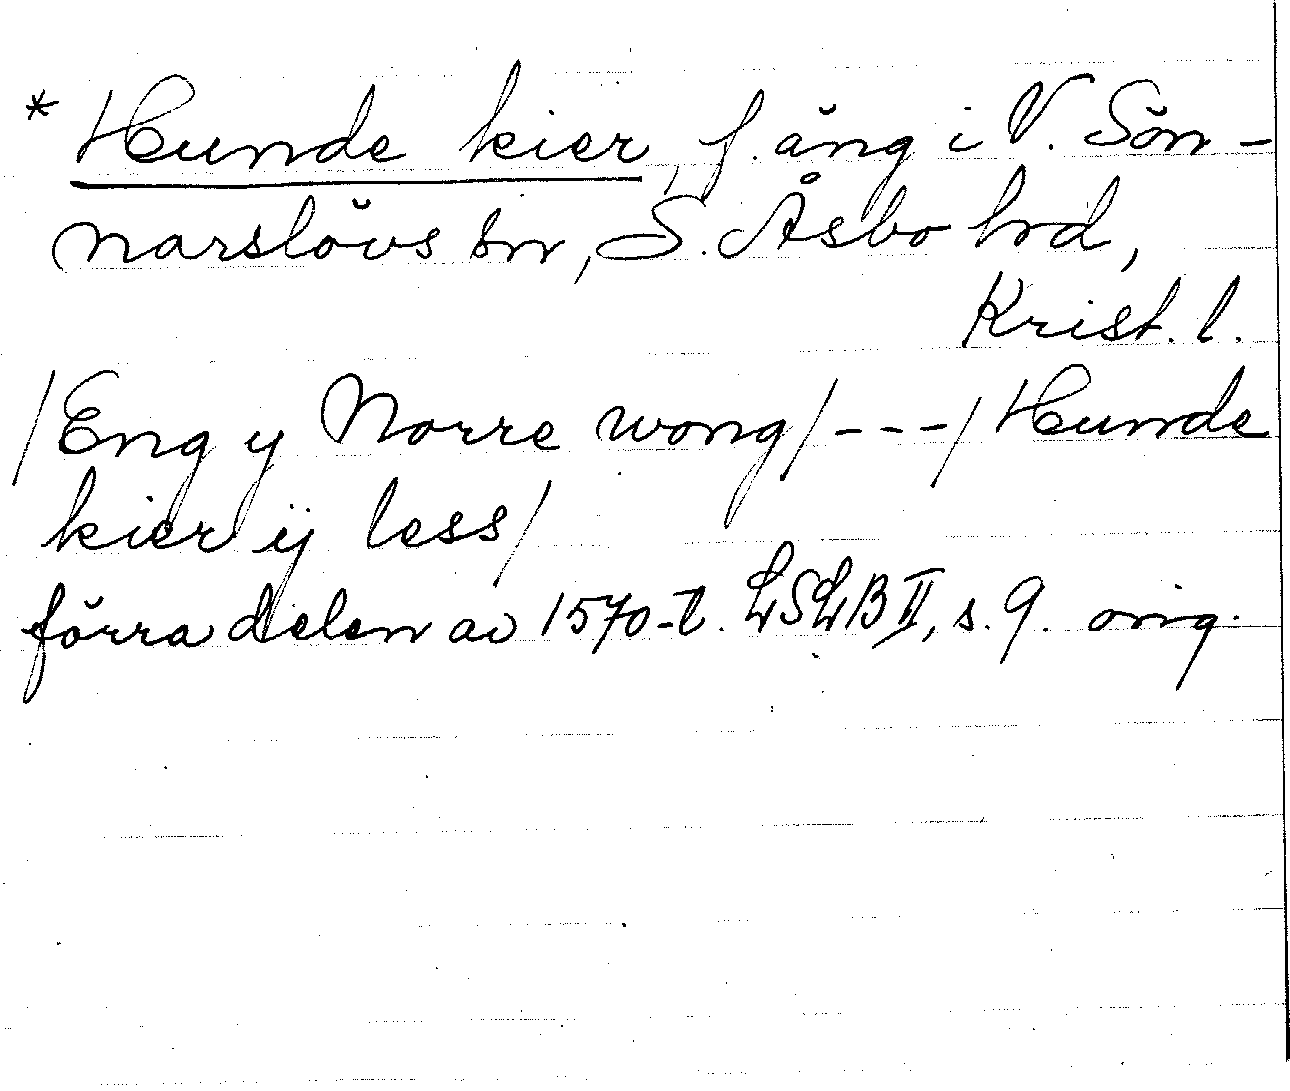 * Hunde kier, f. äng i V. Sön-
narslövs sn, S. Åsbo hd,
Krist. l.
/Eng y Norre wong/---/Hunde
kier ÿ less/
förra delen av 1570-t. LSLB II, s. 9. orig.